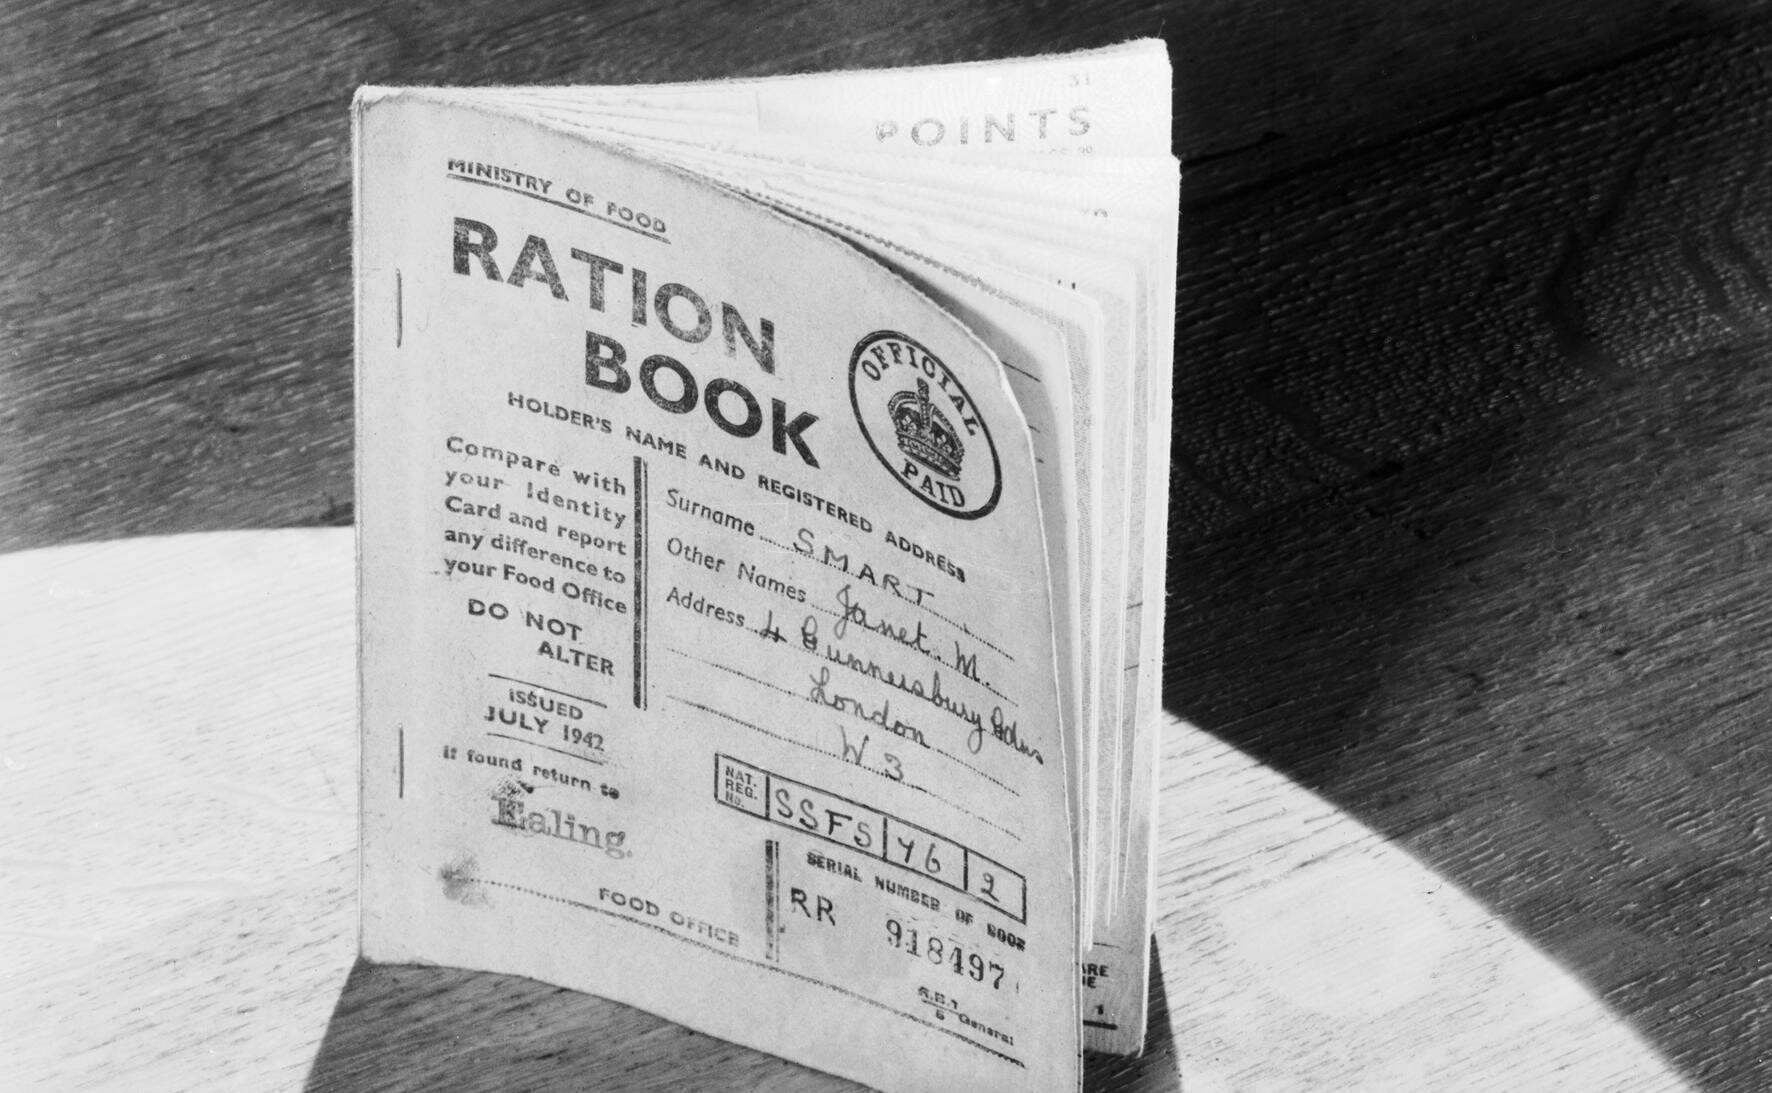 31
POINTS
MINISTRY OF FOOD
RATION
BOOK
OFFICIAL
PAID
HOLDER'S NAME AND REGISTERED ADDRESS
Compare with
your Identity
Card and report
any difference to
your Food Office
DO NOT
ALTER
ISSUED
JULY 1942
If found return to
Ealing.
FOOD OFFICE
Surname SMART
Other Names Janet. M.
Address 4 Gunnersbury Gdns
London
W 3
NAT.
REG.
No.
SSFS 46 2
SERIAL NUMBER OF BOOK
RR 918497
R.B.1
6 General
1